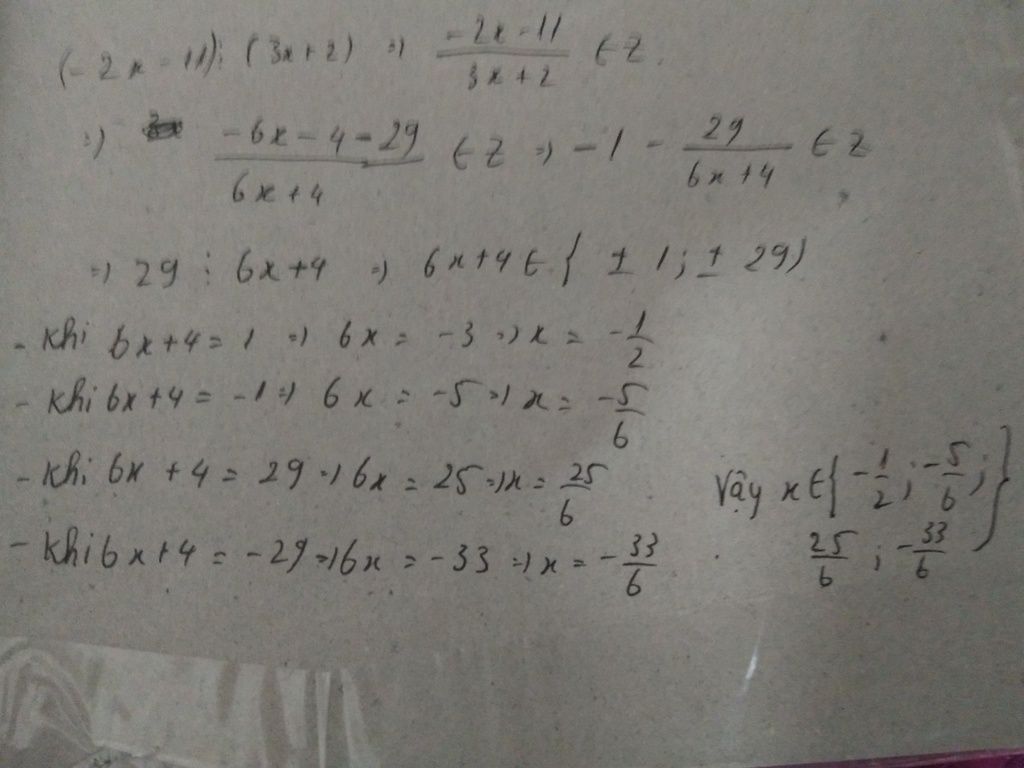 (-2x-11) ⋮ (3x+2) => (-2x-11)/(3x+2) ∈ Z.
=> (-6x-4-29)/(6x+4) ∈ Z => -1 - 29/(6x+4) ∈ Z
=> 29 ⋮ 6x+4 => 6x+4 ∈ { ±1; ±29)
- Khi 6x+4 = 1 => 6x = -3 => x = -1/2
- Khi 6x+4 = -1 => 6x = -5 => x = -5/6
- Khi 6x+4 = 29 => 6x = 25 => x = 25/6
- Khi 6x+4 = -29 => 6x = -33 => x = -33/6
Vậy x ∈ { -1/2; -5/6;
25/6; -33/6 }